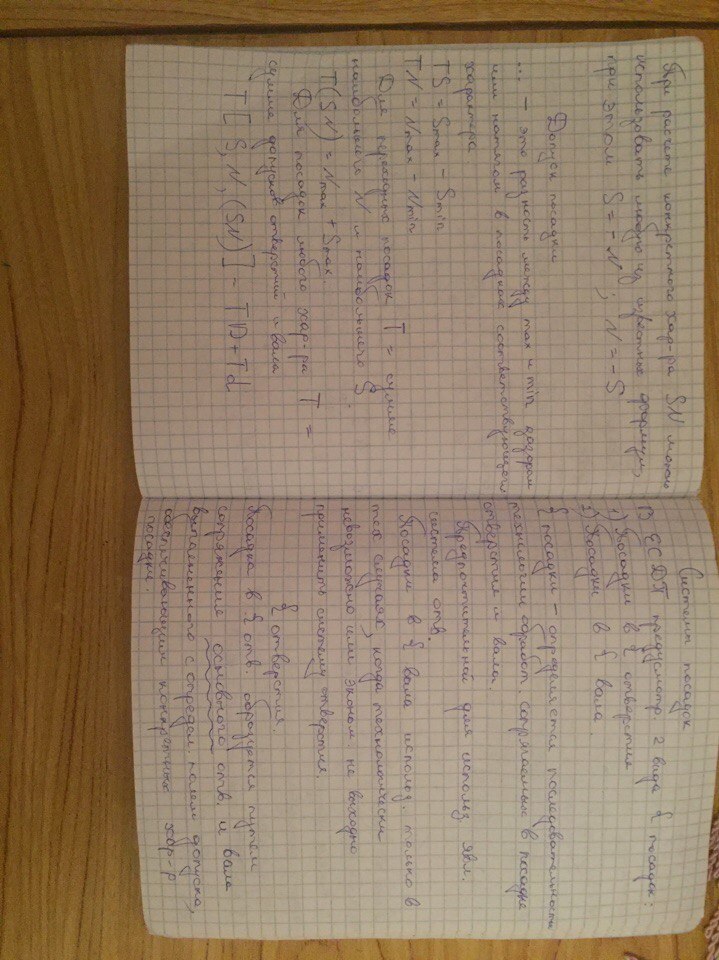 При расчете конкретного хар-ра SN можно
использовать любую из известных формул,
при этом S = -N ; N = -S
Допуск посадки
... – это разность между max и min зазором
или натягом в посадках соответствующего
характера
TS = Smax - Smin
TN = Nmax - Nmin
Для переходных посадок T = сумме
наибольшего N и наибольшего S.
T(SN) = Nmax + Smax.
Для посадок любого хар-ра T =
сумме допусков отверстия и вала
T[S, N, (SN)] = TD + Td
Системы посадок
В ЕСДП предусмотр. 2 вида { посадок:
1) Посадки в { отверстия
2) Посадки в { вала.
{ посадки – определяется последовательностью
технологии обработ. сопрягаемых в посадке
отверстия и вала.
Предпочтительной для использ. явл.
система отв.
Посадки в { вала использ. только в
тех случаях, когда технологически
невозможно или эконом. не выгодно
применить систему отверстия.
{ отверстия.
Посадка в { отв. образуется путем
сопряжения основного отв. и вала
выполненного с определ. полем допуска,
обеспечивающим конкретный хар-р
посадки.